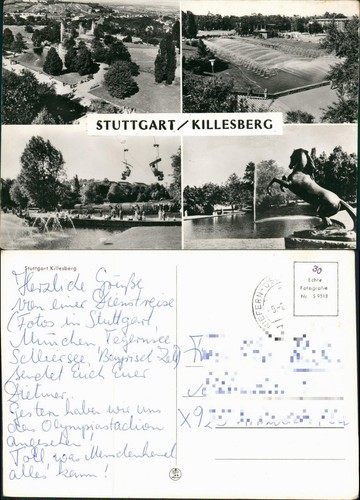 STUTTGART/KILLESBERG
Stuttgart Killesberg
Herzliche Grüße
von einer Dienstreise
(Fotos in Stuttgart,
München, Tegernsee,
Schliersee, Bayrisch Zell)
sendet Euch Euer
Dietmar.
Gestern haben wir uns
das Olympiastadion
angesehen!
Toll, was Menschenhand
alles kann!
30
Echte
Fotografie
Nr. S 9518
X9